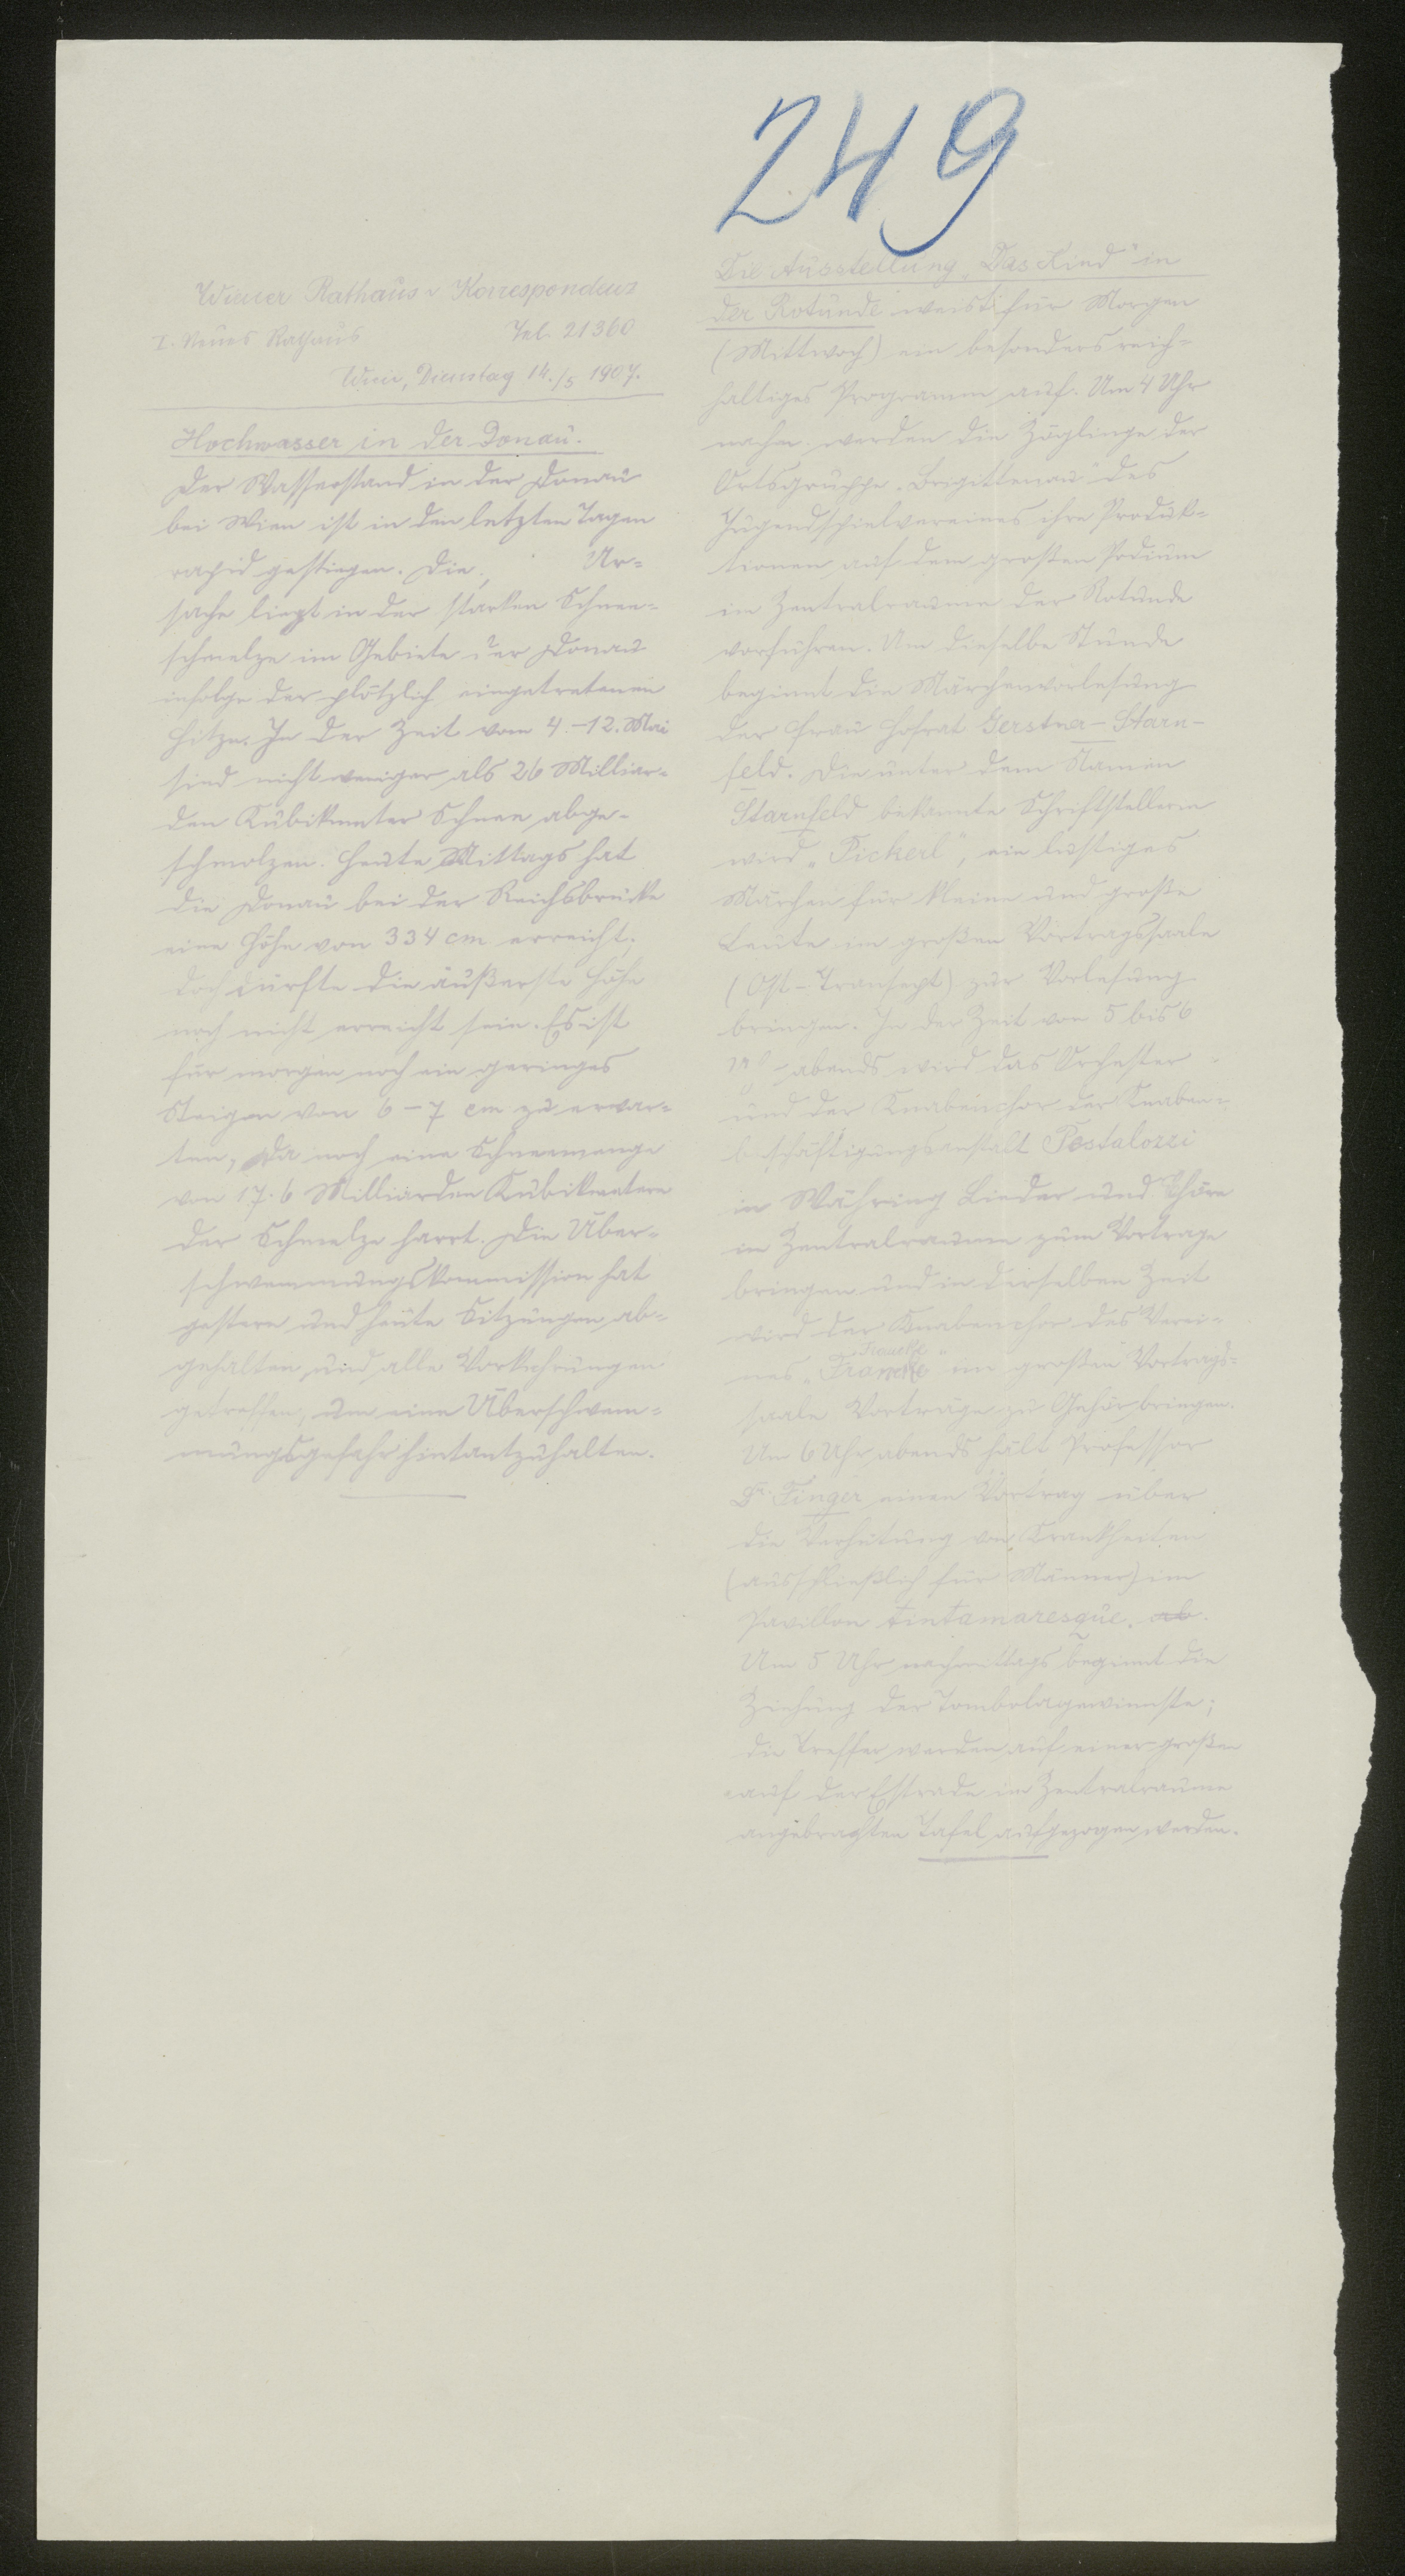 249
Wiener Rathaus-Korrespondenz
I. Neues Rathaus Tel. 21360
Wien, Dienstag 14./5 1907.
Hochwasser in der Donau.
Der Wasserstand in der Donau
bei Wien ist in den letzten Tagen
rapid gestiegen. Die Ur-
sache liegt in der starken Schnee-
schmelze im Gebiete der Donau
infolge der plötzlich eingetretenen
Hitze. In der Zeit vom 4.-12. Mai
sind nicht weniger als 26 Milliar-
den Kubikmeter Schnee abge-
schmolzen. Heute Mittags hat
die Donau bei der Reichsbrücke
eine Höhe von 334 cm erreicht,
doch dürfte die äußerste Höhe
noch nicht erreicht sein. Es ist
für morgen noch ein geringes
Steigen von 6-7 cm zu erwar-
ten, da noch eine Schneemenge
von 17.6 Milliarden Kubikmetern
der Schmelze harrt. Die Über-
schwemmungskommission hat
gestern und heute Sitzungen ab-
gehalten und alle Vorkehrungen
getroffen, um eine Überschwem-
mungsgefahr hintantzuhalten.
Die Ausstellung „Das Kind" in
der Rotunde weist für Morgen
(Mittwoch) ein besonders reich-
haltiges Programm auf. Um 4 Uhr
nachm. werden die Zöglinge der
Ortsgruppe „Brigittenau" des
Jugendspielvereines ihre Produk-
tionen auf dem großen Podium
im Zentralraume der Rotunde
vorführen. Um dieselbe Stunde
beginnt die Märchenvorlesung
der Frau Hofrat Gerstner-Starn-
feld. Die unter dem Namen
Starnfeld bekannte Schriftstellerin
wird „Pickerl", ein lustiges
Märchen für kleine und große
Leute im großen Vortragssaale
(Ost-Transept) zur Vorlesung
bringen. In der Zeit von 5 bis 6
abends wird das Orchester
und der Knabenchor der Knaben-
beschäftigungsanstalt Pestalozzi
in Währing Lieder und Chöre
im Zentralraume zum Vortrage
bringen und in derselben Zeit
wird der Knabenchor des Verei-
nes „Francke" im großen Vortrags-
saale Vorträge zu Gehör bringen.
Um 6 Uhr abends hält Professor
Dr. Finger einen Vortrag über
die Verhütung von Krankheiten
(ausschließlich für Männer) im
Pavillon tintamaresque. ab.
Um 5 Uhr nachmittags beginnt die
Ziehung der Tombolagewinnste;
die Treffer werden auf einer großen
auf der Estrade im Zentralraume
angebrachten Tafel aufgezogen werden.